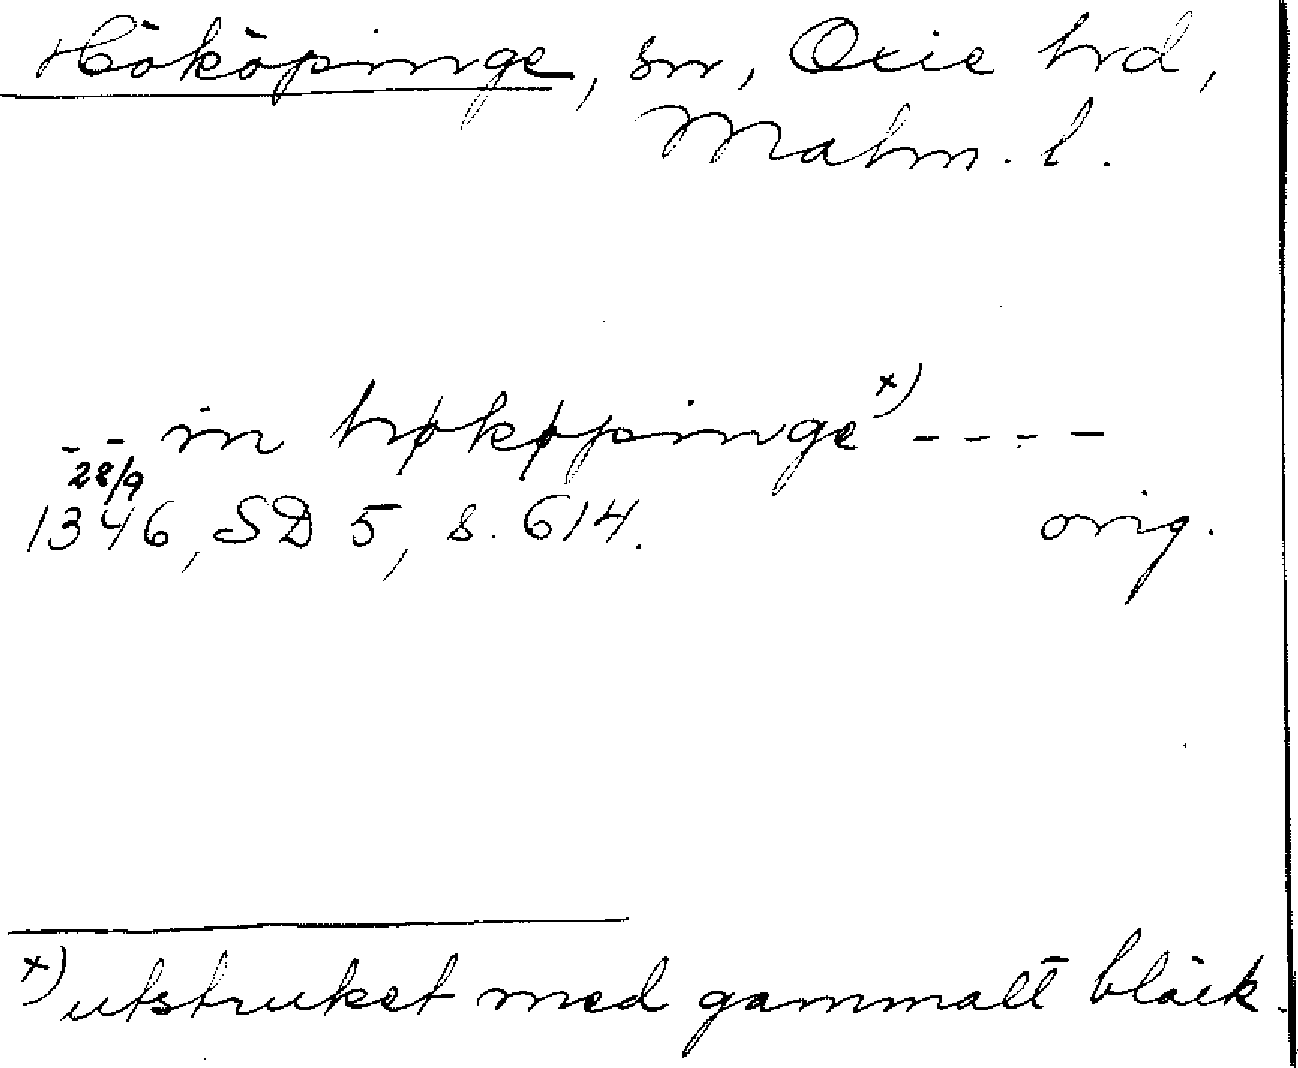 Hököpinge, sn, Oxie hrd,
Malm. l.
-- in høkøpinge x) ----
28/9
1346, SD 5, s. 614. orig.
x) utstruket med gammalt bläck.